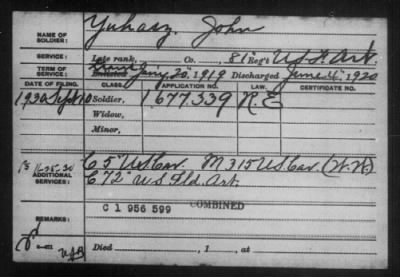 NAME OF SOLDIER: Yuhasz, John
SERVICE: Late rank, Co. , 81" Reg't U.S.F. Art.
TERM OF SERVICE: Enlisted Jan'y 20", 1919 Discharged June 4", 1920
DATE OF FILING. CLASS. APPLICATION NO. LAW. CERTIFICATE NO.
1930 Sept 10 Soldier, 1677,339 R.E
Widow,
Minor,
ADDITIONAL SERVICES: 11-25-30 C 5" U.S. Cav. M 315 U.S. Cav. (N.R.)
C 72" U.S. Fld. Art.
C 1 956 599 COMBINED
REMARKS:
Died , 1 , at